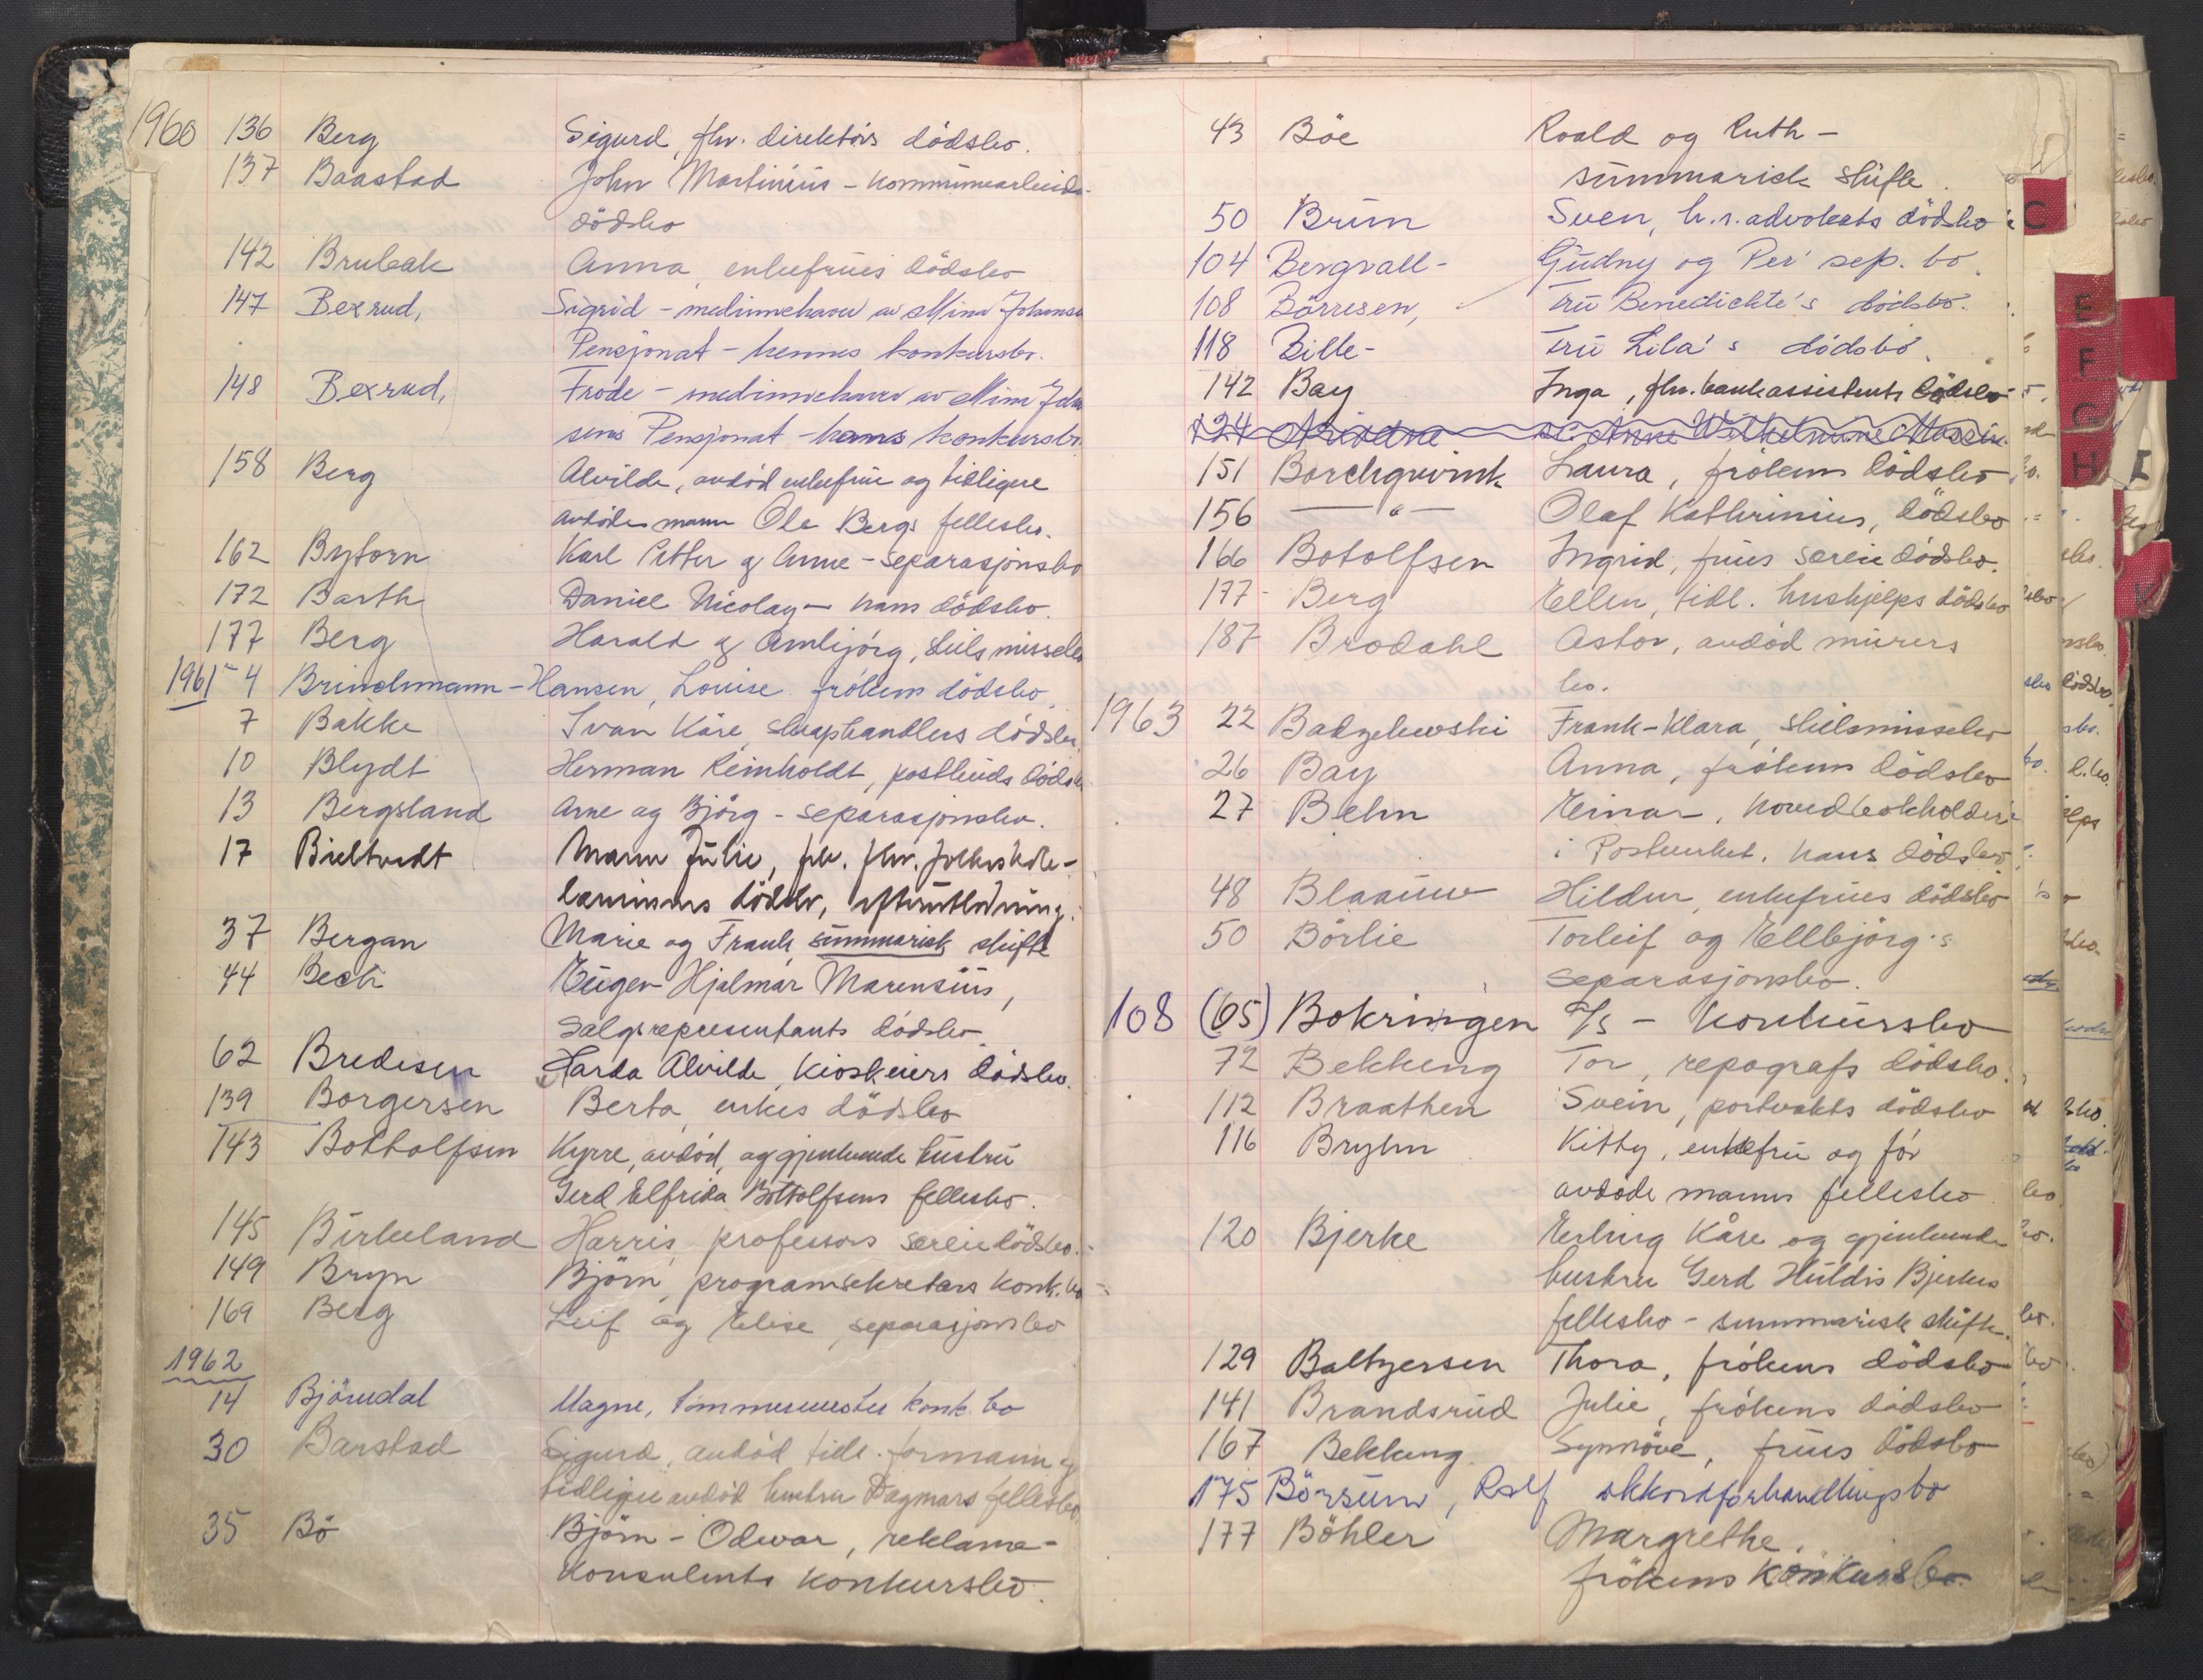 1960 136 Berg Sigurd, fhv. direktörs dödsbo.
137 Baastad John Martinius - kommunearbeids-
dödsbo
142 Brubak Anna enkefrues dödsbo
147 Bexrud, Sigrid - medinnehaver av Mimi Johansens
Pensjonat - hennes konkursbo.
148 Bexrud, Frode - medinnehaver av Mimi Johan
sens Pensjonat - hans konkursbo.
158 Berg Alvilde, avdöd enkefrue og tidligere
avdöde mann Ole Bergs fellesbo.
162 Bytorn Karl Petter og Anne - separasjonsbo
172 Barth Daniel Nicolay - hans dödsbo.
177 Berg Harald og Ambjörg, skilsmissebo
1961 - 4 Brinchmann-Hansen, Louise frökens dödsbo
7 Bakke Ivan Kåre, skraphandlers dödsbo.
10 Blydt Herman Reinholdt, postbuds dödsbo
13 Bergsland Arne og Björg - separasjonsbo.
17 Bieltvedt Maren Julie, frk. fhv. folkeskole-
lærerinnes dödsbo, efterutlodning.
37 Bergan Marie og Frank summarisk skifte
44 Bech Eugen Hjalmar Marensius,
salgsrepresentants dödsbo
62 Bredesen Harda Alvilde, kioskeiers dödsbo.
139 Borgersen Berta, enkes dödsbo
143 Bottolfsen Kyrre, avdöd, og gjenlevende hustru
Gerd Elfrida Bottolfsens fellesbo.
145 Birkeland Harris, professors særeiedödsbo.
149 Bryn Björn, programsekretærs konk.bo
169 Berg Leif og Elise, separasjonsbo
1962
14 Björndal Magne, tömmermester konk. bo
30 Barstad Sigurd, avdöd tidl. formann og
tidligere avdöd hustru Dagmars fellesbo.
35 Bö Björn-Odvar, reklame-
konsulents konkursbo.
43 Böe Roald og Ruth -
summarisk skifte.
50 Bruun Sven, h.r.advokats dödsbo
104 Bergvall - Gudny og Per sep. bo.
108 Börresen, Fru Benedichte's dödsbo.
118 Bille - Fru Lila's dödsbo.
142 Bay Inga, fhv. bankassistents dödsbo
124 Anne Wilhelmine
151 Borchgrevink Laura, frökens dödsbo
156 — " — Olaf Kathrinius, dödsbo
166 Botolfsen Ingrid, frues særeiedödsbo.
177 - Berg Ellen, tidl. hushjelps dödsbo
187 Brodahl Astor, avdöd murers
bo.
1963 22 Badzelewski Frank-Klara, skilsmissebo
26 Bay Anna, frökens dödsbo
27 Behn Einar, hovedbokholder
i Postverket, hans dödsbo
48 Blaauw Hildur, enkefrues dödsbo
50 Börlie Torleif og Ellbjörg's
separasjonsbo.
108 (65) Bokringen A/S - konkursbo
72 Bekkeng Tor, repografs dödsbo.
112 Braathen Svein, portvakts dödsbo
116 Bryhn Kitty, enkefru og för
avdöde manns fellesbo
120 Bjerke Erling Kåre og gjenlevende
hustru Gerd Huldis Bjerkes
fellesbo - summarisk skifte.
129 Baltzersen Thora, frökens dödsbo
141 Brandsrud Julie, frökens dödsbo
167 Bekkeng Synnöve, frues dödsbo
175 Börsum, Rolf akkordforhandlingsbo
177 Böhler Margrethe,
frökens konkursbo.
C
E
F
G
H
I
K